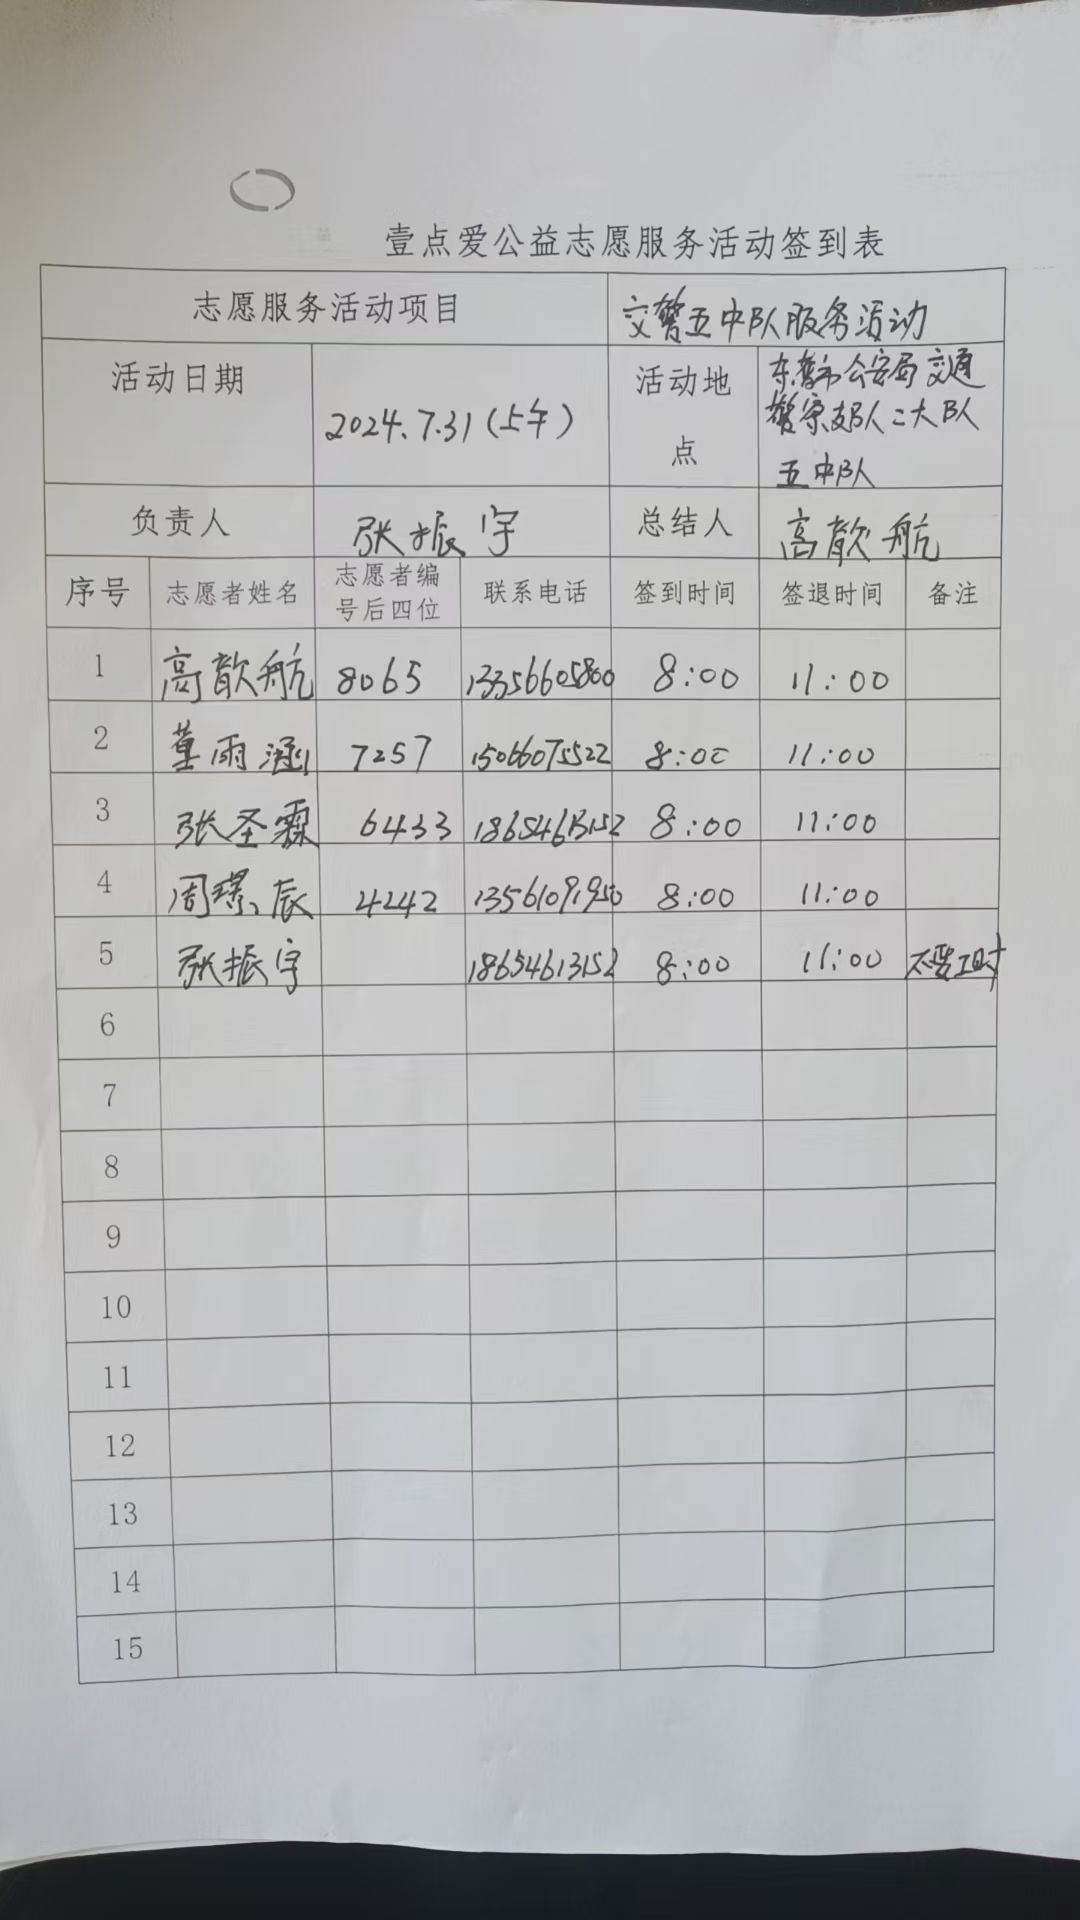 壹点爱公益志愿服务活动签到表
志愿服务活动项目 交警五中队服务活动
活动日期 2024.7.31(上午) 活动地点 公安局交通
警察支队二大队
五中队
负责人 张振宇 总结人 高歆航
序号 志愿者姓名 志愿者编号后四位 联系电话 签到时间 签退时间 备注
1 高歆航 8065 13356605800 8:00 11:00
2 董雨涵 7257 15066075522 8:00 11:00
3 张圣霖 6433 18654613152 8:00 11:00
4 周璟辰 4242 13561091950 8:00 11:00
5 张振宇 18654613152 8:00 11:00 不要工时
6
7
8
9
10
11
12
13
14
15